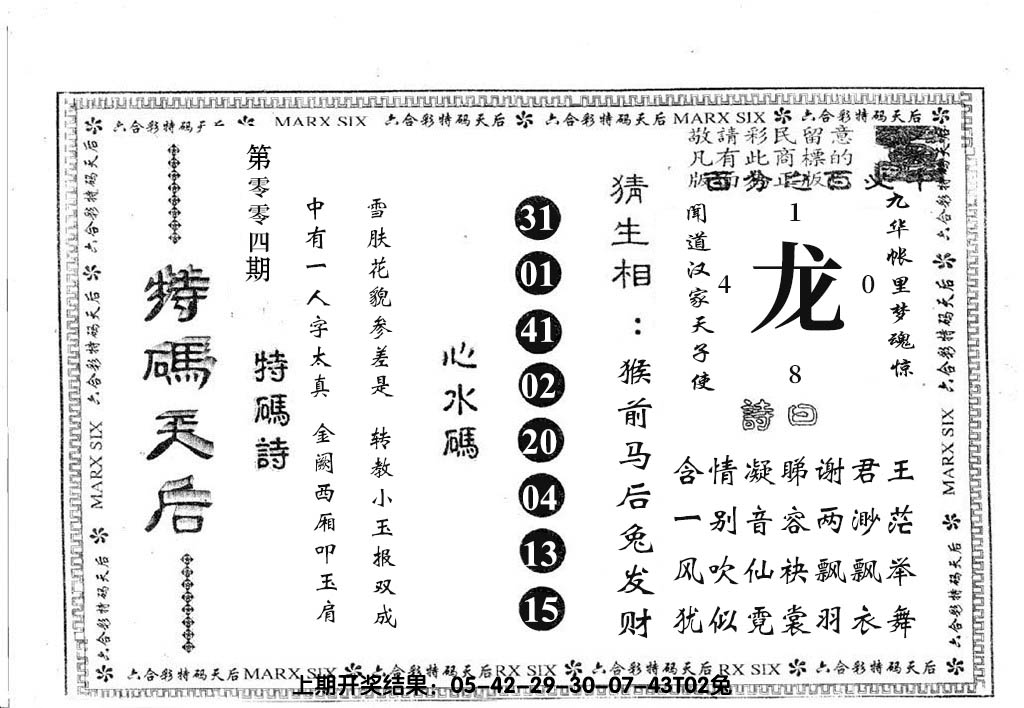 六合彩特码天后 MARX SIX 六合彩特码天后 六合彩特码天后 MARX SIX 六合彩特码天后
敬請彩民留意
凡有此商標的
版面为正版
九华帐里梦魂惊
闻道汉家天子使
1
4
龙
0
8
詩曰
含情凝睇谢君王
一别音容两渺茫
风吹仙袂飘飘举
犹似霓裳羽衣舞
猜生相：猴前马后兔发财
31
01
41
02
20
04
13
15
心水碼
雪肤花貌参差是 转教小玉报双成
中有一人字太真 金阙西厢叩玉肩
第零零四期
特碼詩
特碼天后
六合彩特码天后 MARX SIX 六合彩特码天后
六合彩特码天后 MARX SIX 六合彩特码天后
六合彩特码天后MARX SIX 六合彩特码天后RX SIX 六合彩特码天后RX SIX 六合彩特码天后
上期开奖结果：05-42-29-30-07-43T02兔